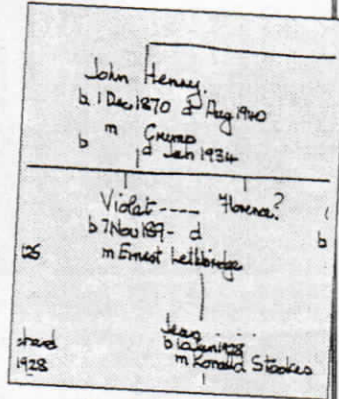 John Henry.
b 1 Dec 1870 d Aug 1940
m
b d Jan 1934
Violet ---- Florence? (
b 7 Nov 189- d b
125
m Ernest Lethbridge
Jean
b 1928
m Ronald Stookes
1928